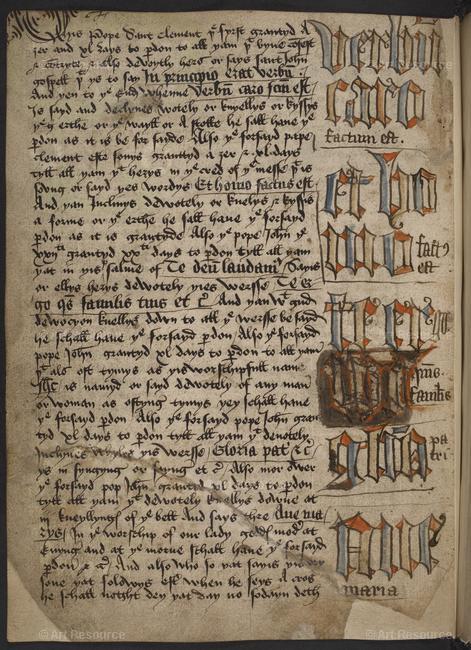 pope Sant clement yᵉ fyrst grantyd A
ȝer and xl days to pdon to all yam yᵗ
& also devoythly hers or says sant John
gospell yᵗ ys to say In principio erat verbū
And yen to yᵉ End whenne Verbū caro fcm est
Is said and declynes devotely or knyellys or kyssys
yᵉ erthe or yᵉ wayll or A stolle he sall haue yᵉ
pdon as it is be for sayde Also yᵉ forsayd pape
clement granttyd A ȝer & xl days
tyll all yam yᵗ herys in yᵉ cred of yᵉ messe yᵗ is
song or sayd yes wordys Et homo factus est
And yan Inclinys dewotely or knelys & kyssys
a forme or yᵉ erthe he sall haue yᵉ forsayd
pdon as it is grantyde Also yᵉ pope John yᵉ
xxijᵗⁱ grantyd xxᵗⁱ days to pdon tyll all yam
yat in yis salme of Te deū laudam Says
or ellys herys dewotely yies wersse Te er
go qs famulis tuis et c And yan wᵗ gud
dewocyon knellys down to all yᵉ wersse be said
he schall haue yᵉ forsayd pdon Also yᵉ forsayd
pope John grantyd xl days to pdon to all yam
yᵗ als oft tymys as yis worschypfull name
Ihc is namyd or said dewotely of any man
or woman as oftyng tymys yey schall haue
yᵉ forsayd pdon Also yᵉ forsayd pope John gran
tyd xl days to pdon tyll all yam yᵗ dewotely
Inclines whyles yis wersse Gloria pat & c
ys in syngyng or sayng et c Also mor ower
yᵉ forsayd pop John grantid xl days to pdon
tyll all yam yᵗ dewotely knellys downe at
in knyellyng of yᵉ bell And says thre Aue ma
rys In yᵉ worschyp of our lady godd mod at
Ewyng and at yᵉ morne schall haue yᵉ forsayd
pdon & c And also who so yat says
sone yat folowys eft when he seys A cros
he schall notght dey yat day no sodayn deth
verbū
caro
factum est
et ho
mo
fact9
est
te er
go
qs
famulis
gloria
pa
tri
Aue
maria
© Art Resource
© Art Resource
© Art Resource